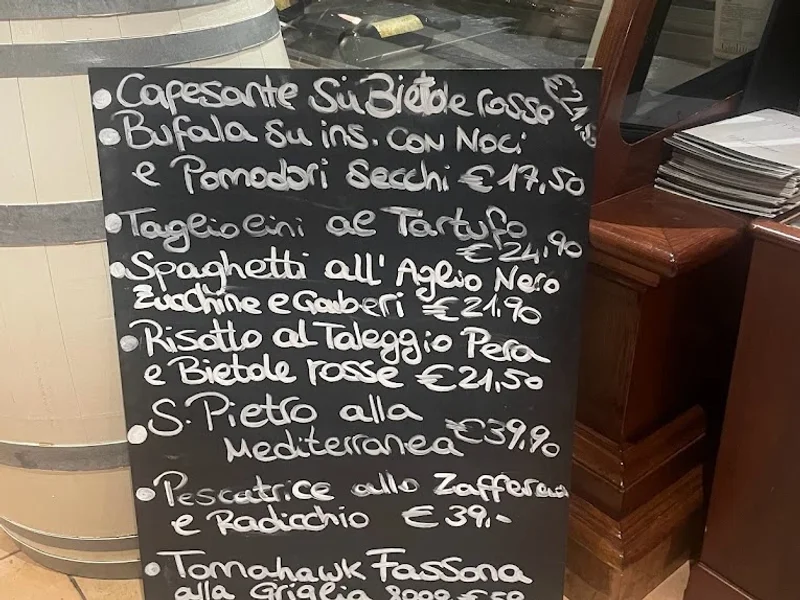 Capesante Su Bietole rosse €21,50
Bufala su ins. CON NOCI
e Pomodori Secchi €17,50
Tagliolini al Tartufo
€24,90
Spaghetti all'Aglio Nero
Zucchine e Gamberi €21,90
Risotto al Taleggio Pera
e Bietole rosse €21,50
S. Pietro alla
Mediterranea €39,90
Pescatrice allo Zafferano
e Radicchio €39,-
Tomahawk Fassona
alla Griglia